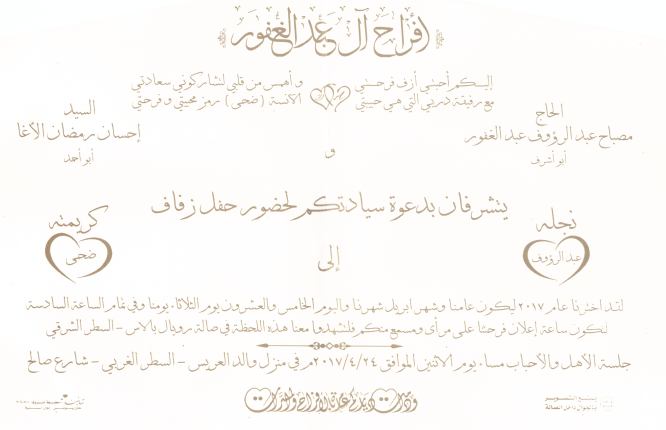 أفراح آل عبد الغفور
إليكم أحبتي أزف فرحتي وأهمس من قلبي لتشاركوني سعادتي
مع رفيقة دربي التي هي حبيبتي الآنسة (ضحى) رمز محبتي وفرحتي
الحاج
مصباح عبد الرؤوف عبد الغفور
أبو أشرف
و
السيد
إحسان رمضان الأغا
أبو أحمد
يتشرفان بدعوة سيادتكم لحضور حفل زفاف
نجله
عبد الرؤوف
إلى
كريمته
ضحى
لقد اخترنا عام ٢٠١٧ ليكون عامنا وشهر ابريل شهرنا واليوم الخامس والعشرون يوم الثلاثاء يومنا وفي تمام الساعة السادسة
لتكون ساعة إعلان فرحتنا على مرأى ومسمع منكم فلتشهدوا معنا هذه اللحظة في صالة رويال بالاس - السطر الشرقي
جلسة الأهل والأحباب مساء يوم الاثنين الموافق ٢٠١٧/٤/٢٤م في منزل والد العريس - السطر الغربي - شارع صالح
ودامت دياركم عامرة بالأفراح والمسرات
يمنع التصوير
بالجوال داخل الصالة